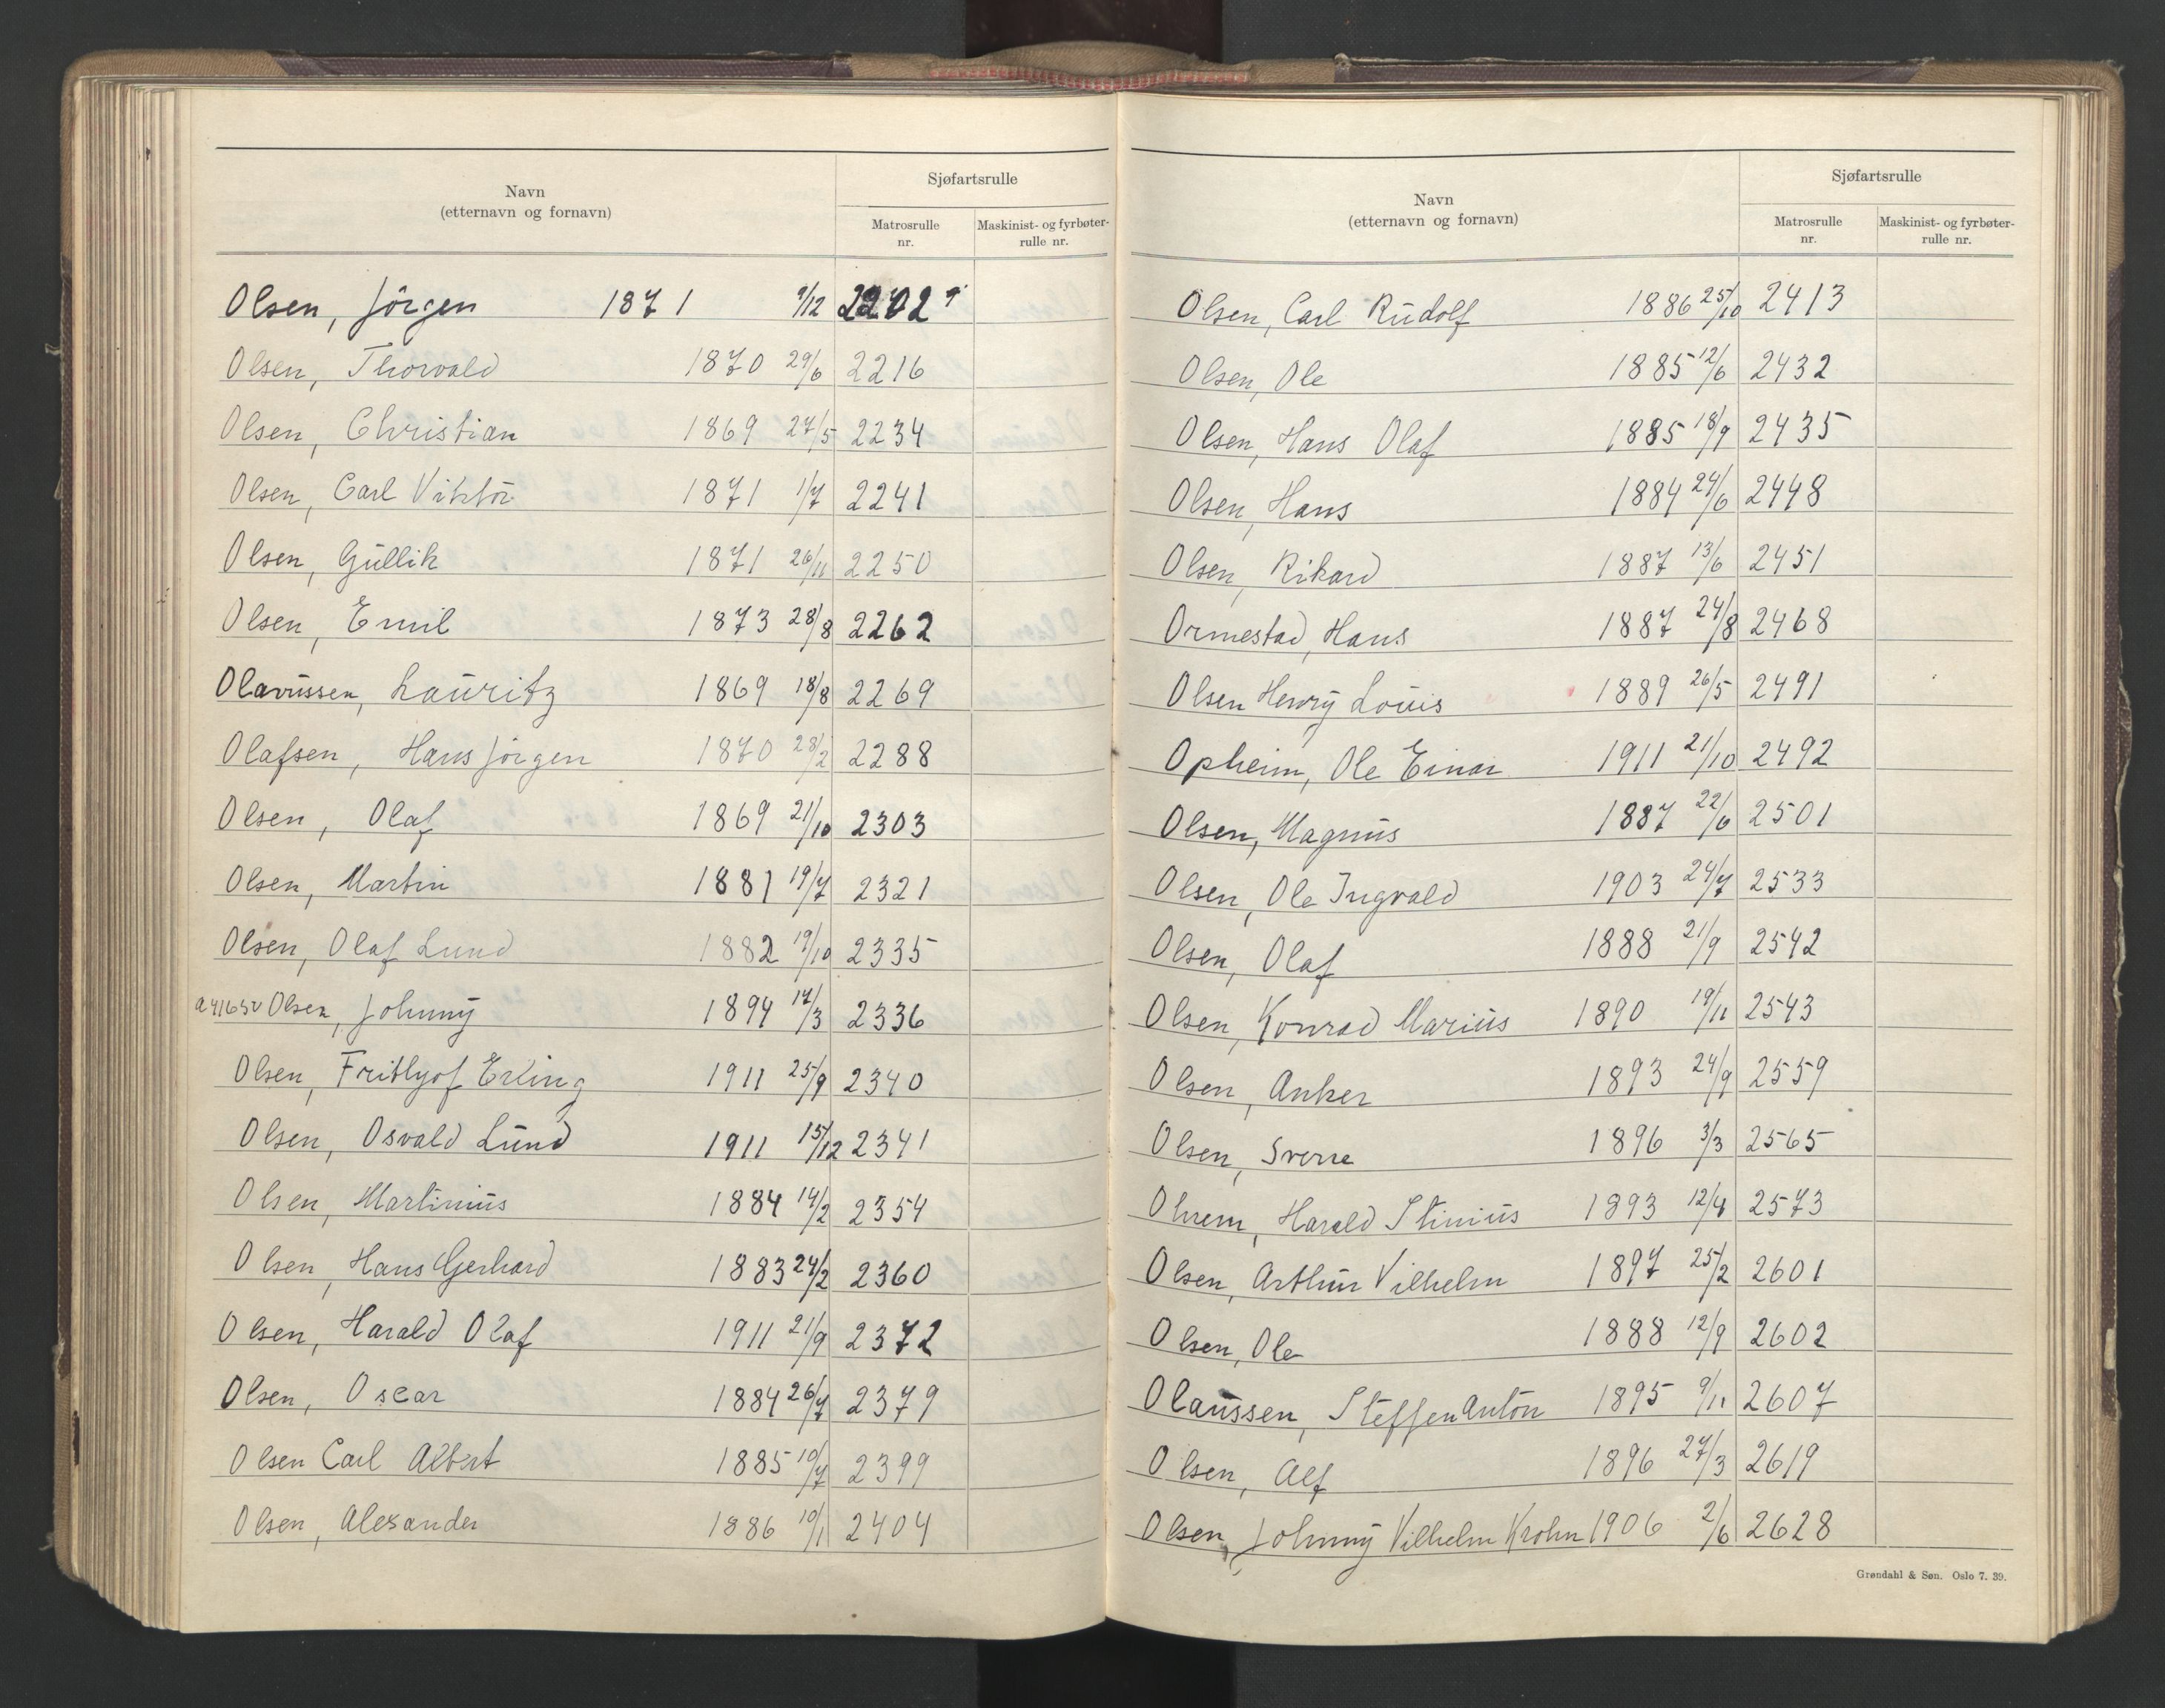 Navn
(etternavn og fornavn)
Sjøfartsrulle
Matrosrulle nr.
Maskinist- og fyrbøter-rulle nr.
Olsen, Jörgen 1871 9/12 2202
Olsen, Thorvald 1870 29/6 2216
Olsen, Christian 1869 27/5 2234
Olsen, Carl Viktor 1871 1/7 2241
Olsen, Gullik 1871 26/11 2250
Olsen, Emil 1873 28/8 2262
Olavussen, Lauritz 1869 18/8 2269
Olafsen, Hans Jörgen 1870 28/2 2288
Olsen, Olaf 1869 21/10 2303
Olsen, Martin 1881 19/7 2321
Olsen, Olaf Lund 1882 19/10 2335
Olsen, Johnny 1894 17/3 2336
Olsen, Frithjof Erling 1911 25/9 2340
Olsen, Osvald Lund 1911 15/12 2341
Olsen, Martinius 1884 14/2 2354
Olsen, Hans Gerhard 1883 24/2 2360
Olsen, Harald Olaf 1911 21/9 2372
Olsen, Oscar 1884 26/7 2379
Olsen Carl Albert 1885 10/7 2399
Olsen, Alexander 1886 10/1 2404
Navn
(etternavn og fornavn)
Sjøfartsrulle
Matrosrulle nr.
Maskinist- og fyrbøter-rulle nr.
Olsen, Carl Rudolf 1886 25/10 2413
Olsen, Ole 1885 12/6 2432
Olsen, Hans Olaf 1885 18/9 2435
Olsen, Hans 1884 24/6 2448
Olsen, Rikard 1887 13/6 2451
Ormestad, Hans 1887 24/8 2468
Olsen Henry Louis 1889 26/5 2491
Opheim, Ole Einar 1911 21/10 2492
Olsen, Magnus 1887 22/6 2501
Olsen, Ole Ingvald 1903 24/7 2533
Olsen, Olaf 1888 21/9 2542
Olsen, Konrad Marius 1890 19/11 2543
Olsen, Anker 1893 24/9 2559
Olsen, Sverre 1896 3/3 2565
Ohrem, Harald Stinius 1893 12/4 2573
Olsen, Arthur Vilhelm 1897 25/2 2601
Olsen, Ole 1888 12/9 2602
Olaussen, Steffen Anton 1895 9/11 2607
Olsen, Alf 1896 27/3 2619
Olsen, Johnny Vilhelm Krohn 1906 2/6 2628
Grøndahl & Søn. Oslo 7. 39.